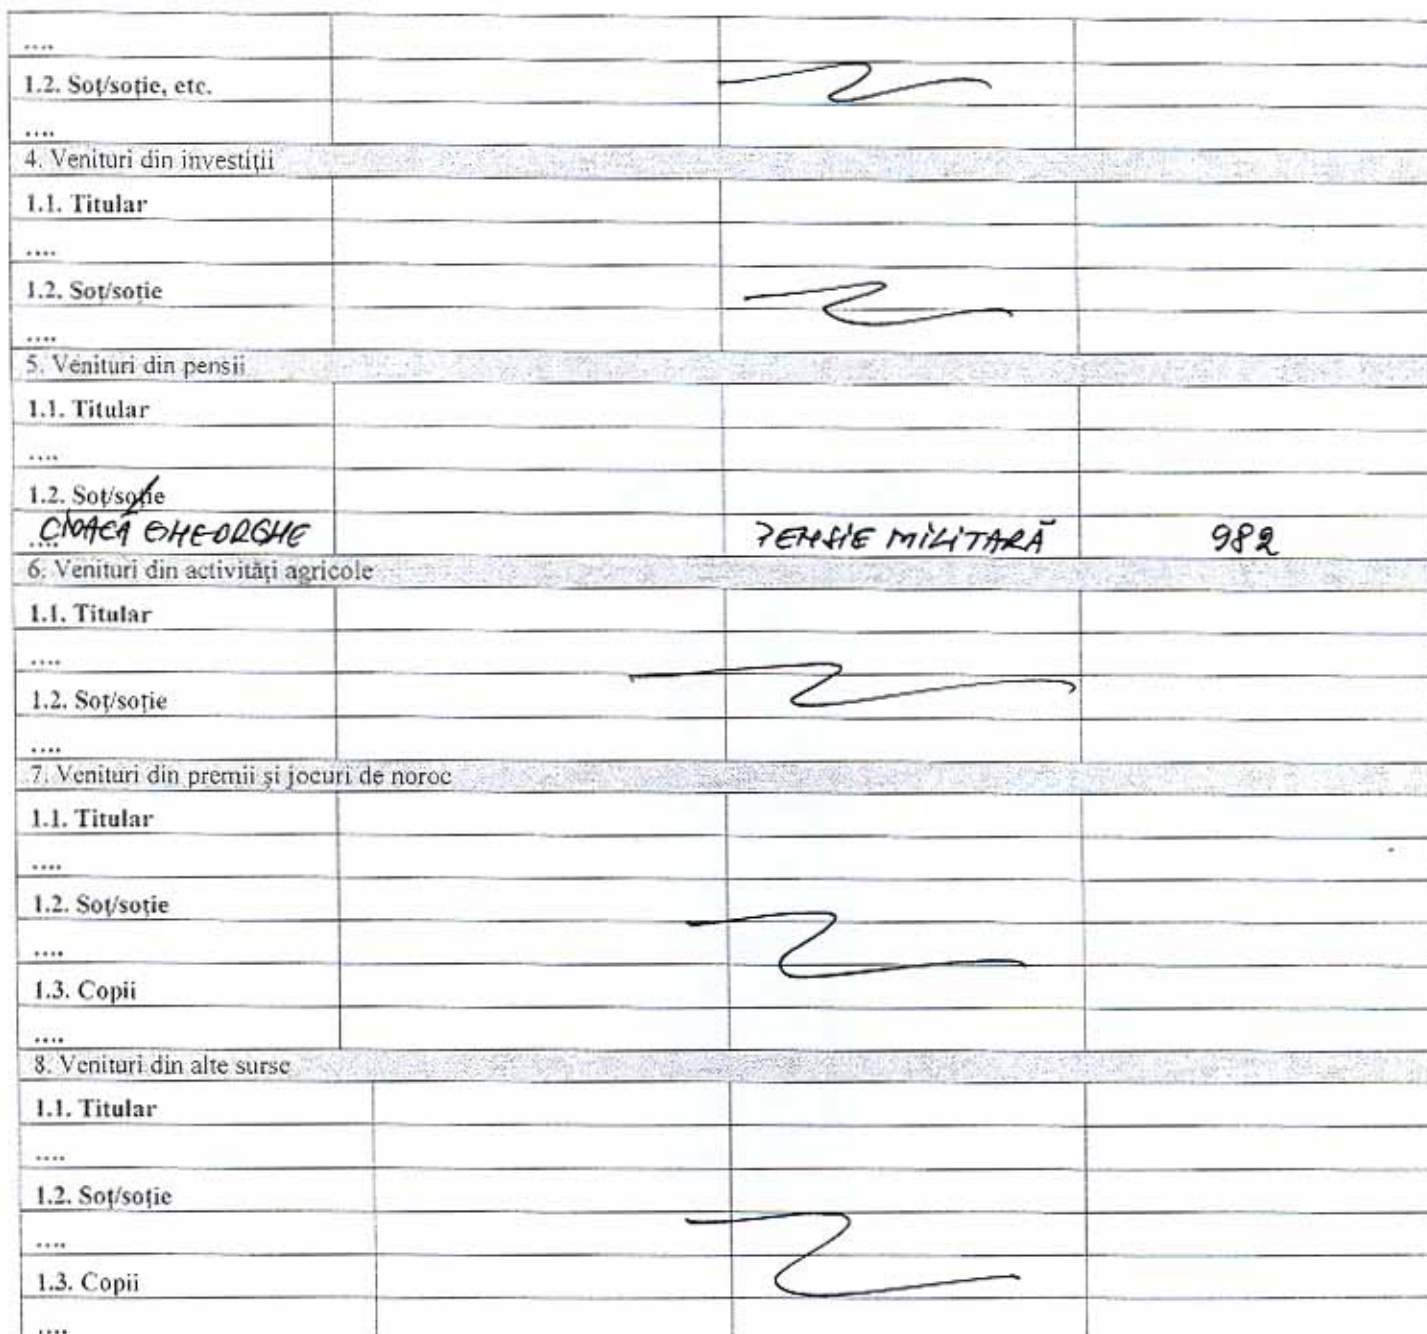 ....
1.2. Soț/soție, etc.
....
4. Venituri din investiții
1.1. Titular
....
1.2. Soț/soție
....
5. Venituri din pensii
1.1. Titular
....
1.2. Soț/soție
.... GHEORGHE PENSIE MILITARĂ 982
6. Venituri din activități agricole
1.1. Titular
....
1.2. Soț/soție
....
7. Venituri din premii și jocuri de noroc
1.1. Titular
....
1.2. Soț/soție
....
1.3. Copii
....
8. Venituri din alte surse
1.1. Titular
....
1.2. Soț/soție
....
1.3. Copii
....